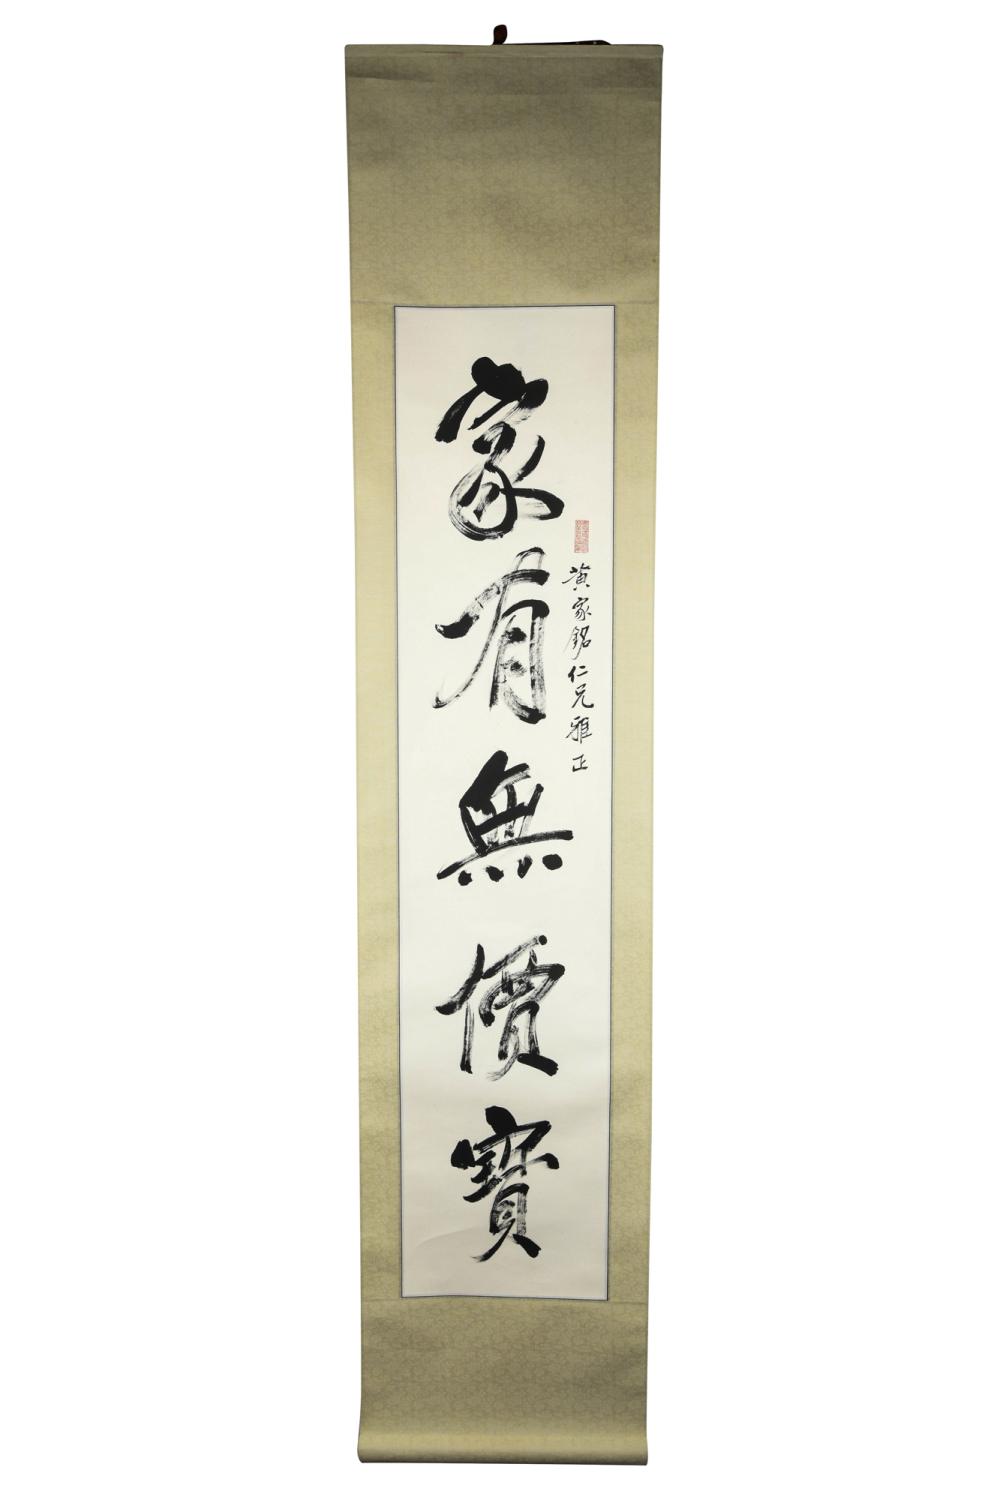 黃家銘仁兄雅正
家有無價寶